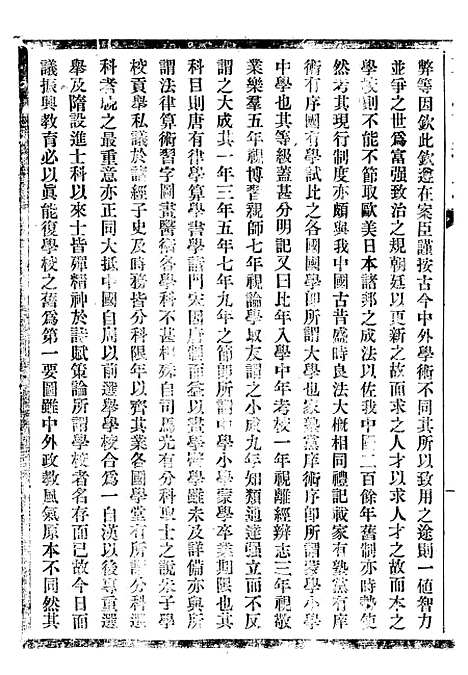 弊等因欽此欽遵在案臣謹按古今中外學術不同其所以致用之途則一值智力
並爭之世爲富强致治之規朝廷以更新之故而求之人才以求才之故而本之
學校則不能不節取歐美日本諸邦之成法以佐我中國二百餘年舊制亦時勢使
然考其現行制度亦頗與我中國古昔盛時良法大概相同禮記載家有塾黨有庠
術有序國有學試比之各國國學卽所謂大學也家塾黨庠術序卽所謂蒙學小學
中學也其等級蓋甚分明記又曰比年入學中年考校一年視離經辨志三年視敬
業樂羣五年視博習親師七年視論學取友謂之小成九年知類通達强立而不反
謂之大成其一年三年五年七年九年之節卽所謂中學小學蒙學卒業期限也其
科目則唐有律學算學書學諸門宋因唐制而益以畫學醫學雖未及詳備亦與所
謂法律算術習字圖畫醫術各學科不甚相殊自司馬光有分科取士之說朱子學
校貢舉私議於諸經子史及時務皆分科限年以齊其業各國學堂有所謂分科選
科者視之最重意亦正同大抵中國自周以前選舉學校合爲一自漢以後專重選
舉及隋設進士科以來士皆殫精神於詩賦策論所謂學校者名存而已故今日而
議振興教育必以眞能復學校之舊爲第一要圖雖中外政教風氣原本不同然其